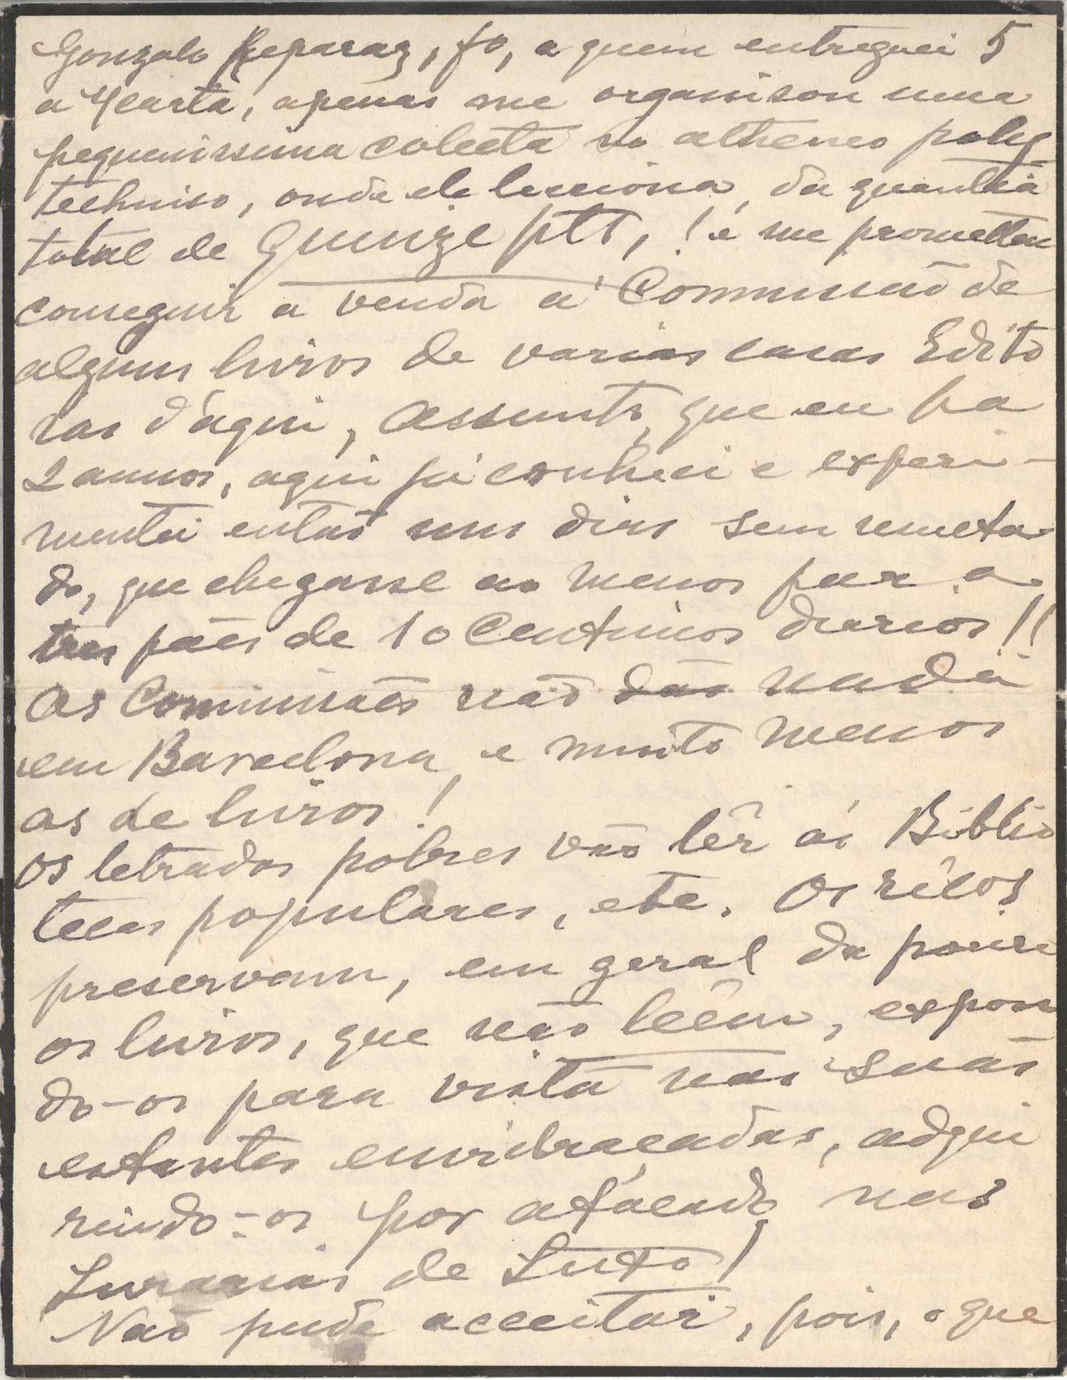 Gonzalo Reparaz, fo, a quem entreguei 5
a Mcarta, apenas me organison uma
pequenissima colecta no atheneo polug
technico, onde ele lecciona, da quantia
total de Quinze ptt, ! e me prometteu
conseguir a venda a' Commissão de
alguns livros de varias casas Edito
ras d'aqui, Assunto, que eu ha
2 annos, aqui já conheci e experi-
mentei então uns dias sem
do, que chegasse ao menos para os
tres pães de 10 Centimos diarios!!
As Commissões não dão nada
em Barcelona, e muito menos
as de livros!
Os letrados pobres vão lêr ás Biblio
tecas populares, etc. Os ricos
preservam, em geral da poeira
os livros, que não lêem, expon
do-os para vista nas suas
estantes envidraçadas, adqui
rindo-os por atacado nas
Livrarias de Luxo!
Não pude acceitar, pois, o que